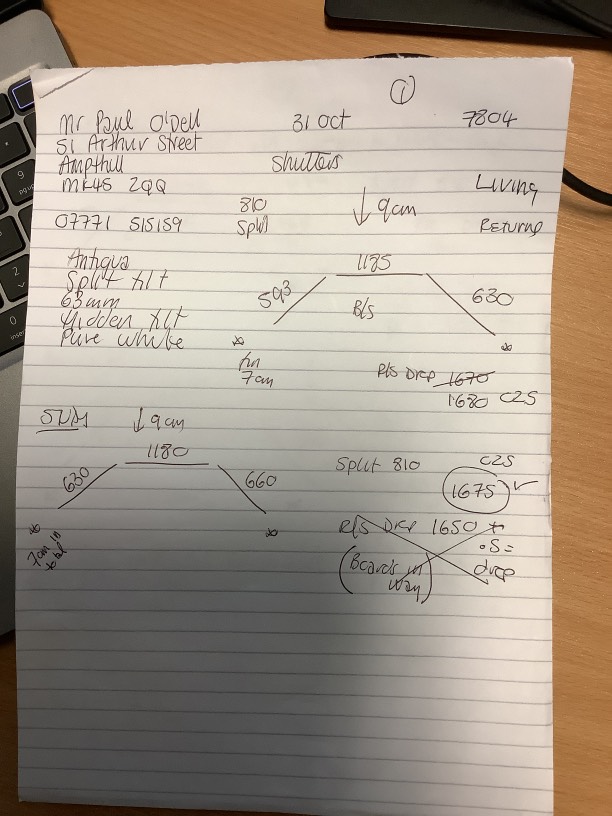 1
Mr Paul O'Dell 31 Oct 7804
51 Arthur Street
Ampthill Shutters
MK45 2QQ Living
07771 515159 810 Split ↓ 9cm Returns
Antigua 1185
Split tilt 593 630
63mm B/S
Hidden tilt
Pure white * *
7cm
R/S Drop 1670
1680 C2S
↓ 9cm
1180
630 660
Split 810 C2S
1675 ✓
* *
7cm
R/S Drop 1650 +
.5 =
(Boards in drop
way)